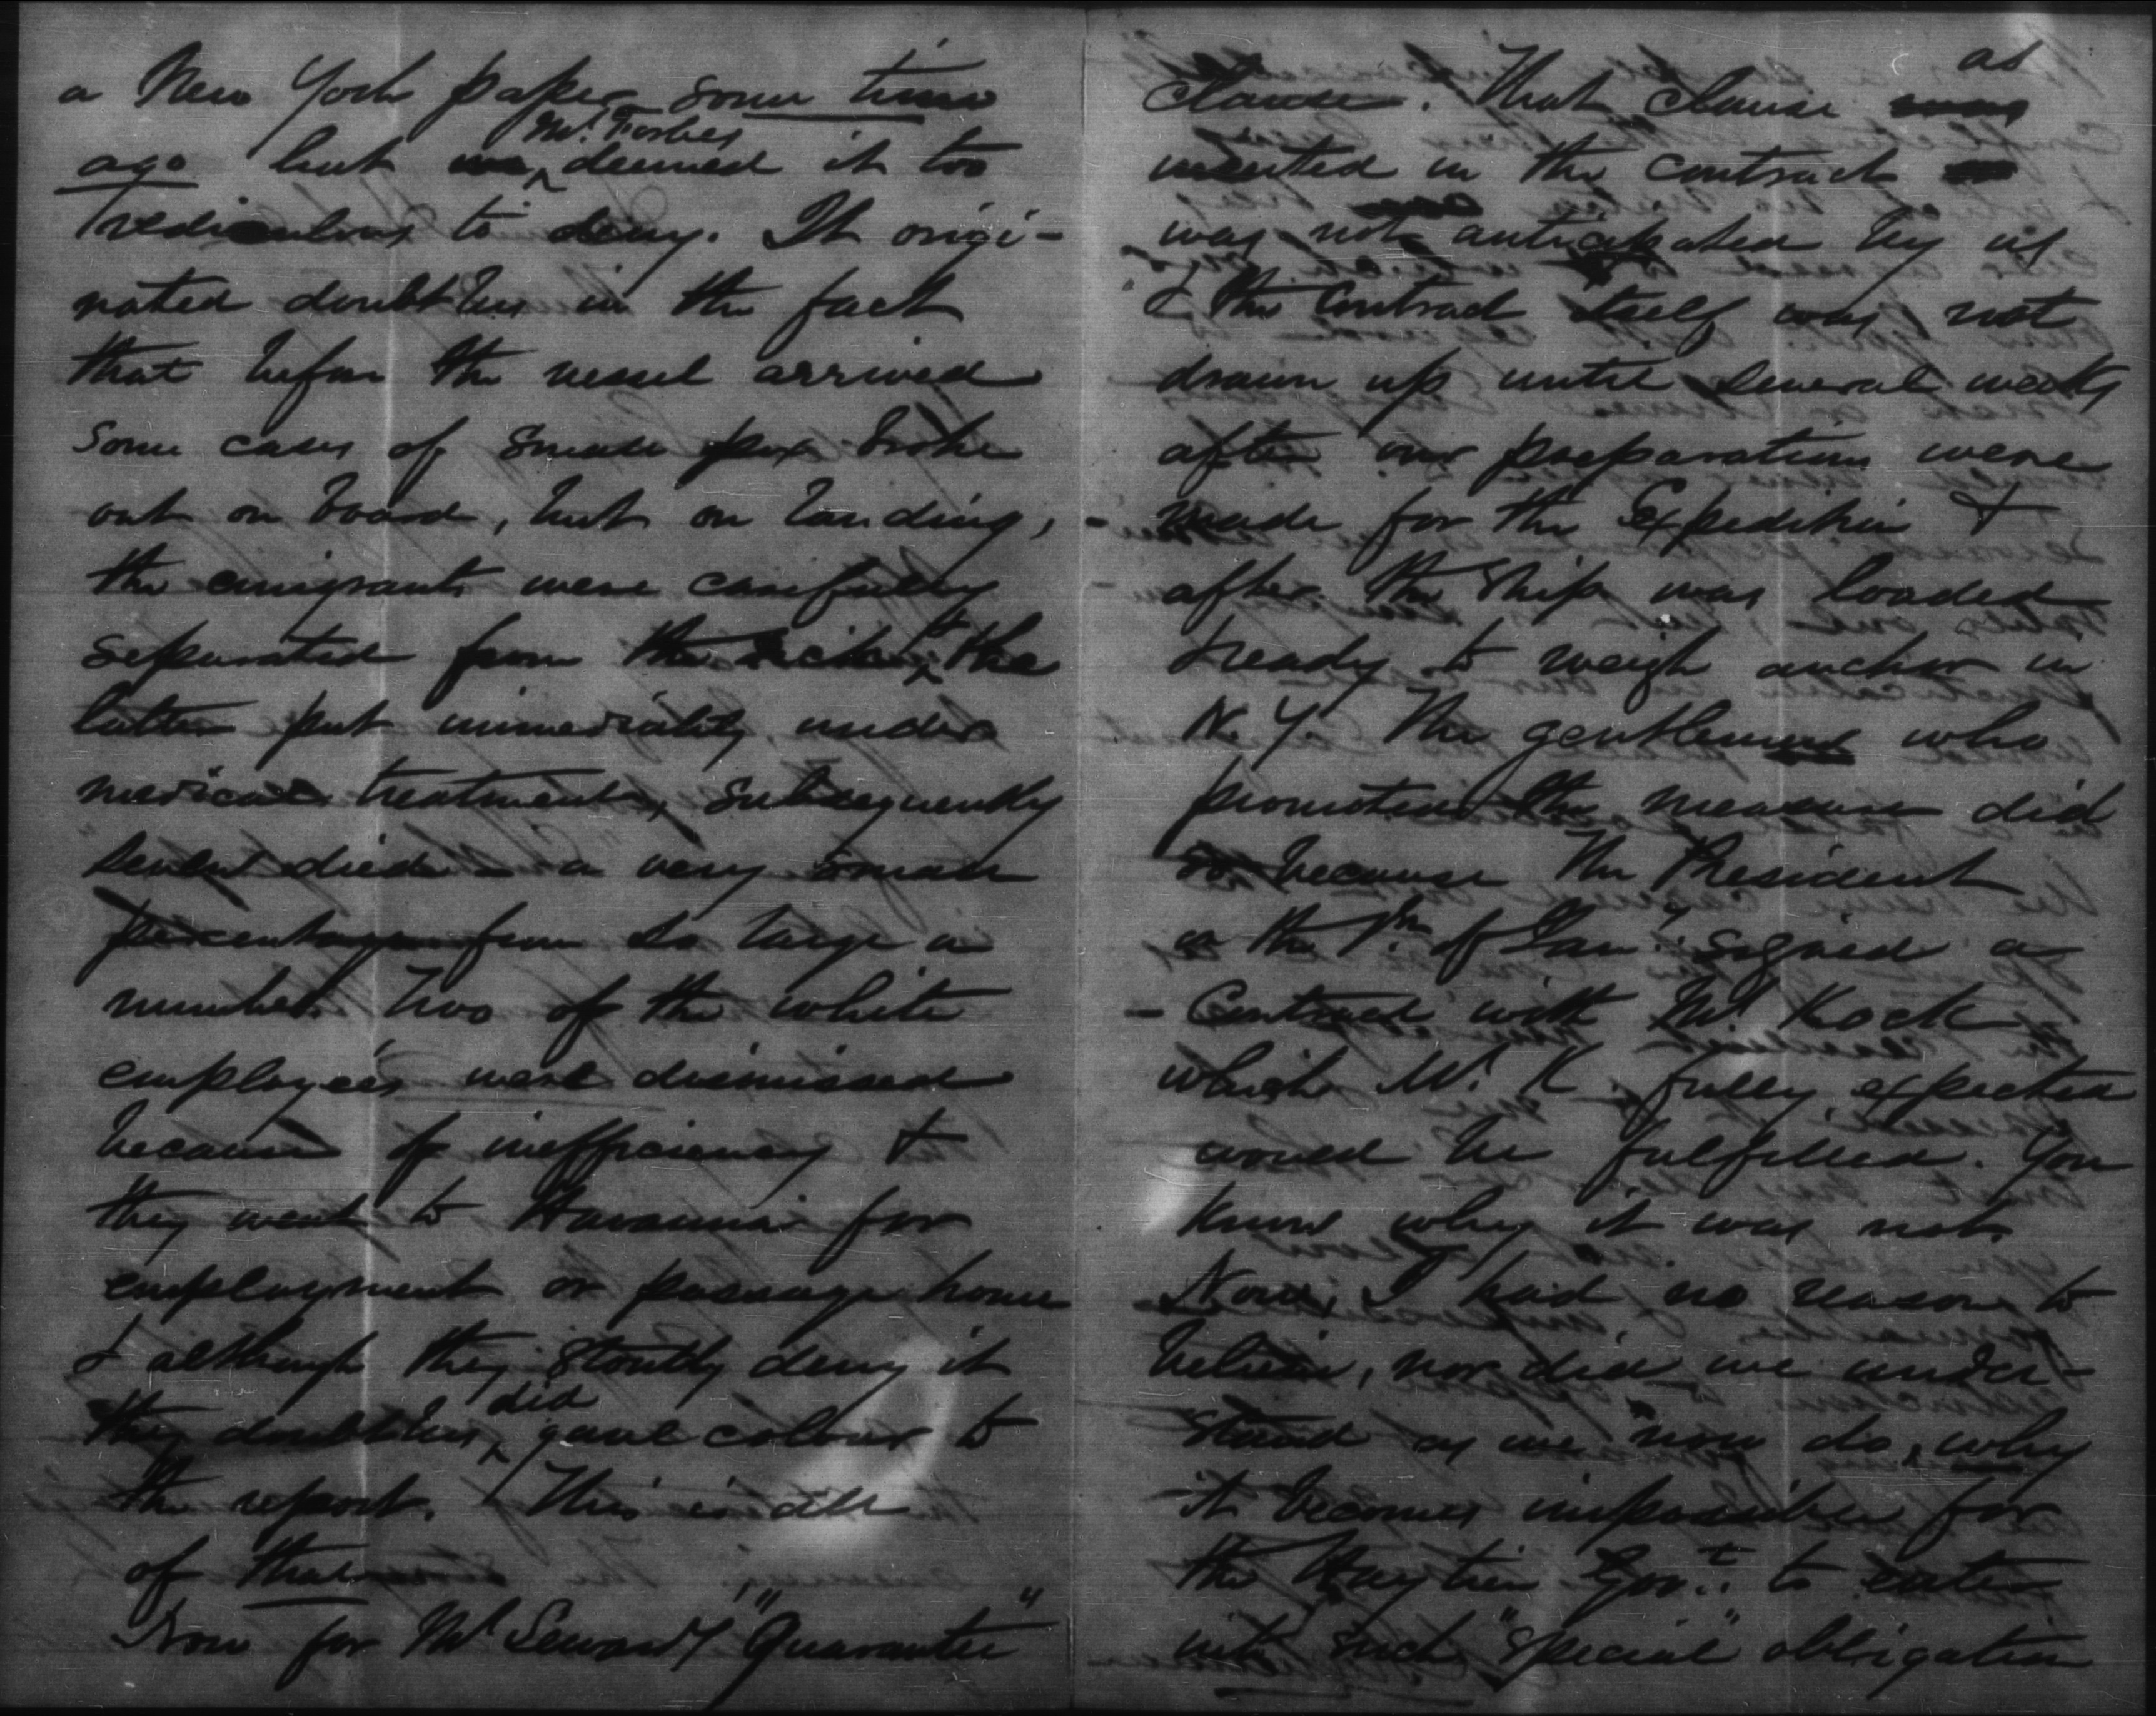 a New York paper some time
ago but we Mr. Forbes deemed it too
rediculous to deny. It origi-
nated doubtless in the fact
that before the vessel arrived
some cases of small pox broke
out on board, but on landing,
the emigrants were carefully
separated from the sick & the
latter put immediately under
medical treatment, subsequently
several died - a very small
percentage from so large a
number. Two of the white
employeés were dismissed
because of inefficiency &
they went to Havanna for
employment or passage home
& although they stoutly deny it
they doubtless did gave colour to
the report. This is all
of that
Now for Mr Seward's "Guarantee"
Clause. That clause was as
inserted in the contract
was not anticipated by us
& the contract itself was not
drawn up until several weeks
after our preparations were
made for the Expedition &
after the ship was loaded
& ready to weigh anchor in
N.Y. The gentlemen who
promoted the measure did
so because the President
on the 1st of Jany. signed a
Contract with Mr. Kock
which Mr. K. fully expected
would be fulfilled. You
know why it was not.
Now, I had no reason to
believe, nor did we under-
stand as we now do, why
it becomes impossible for
the Haytien Govt. to enter
into such "special" obligation